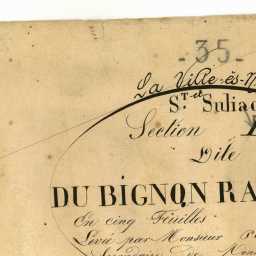 - 35 -
La Ville-ès-N
St Suliac
Section
Dite
DU BIGNON RA
En cinq Feuilles
Levée par Monsieur
de